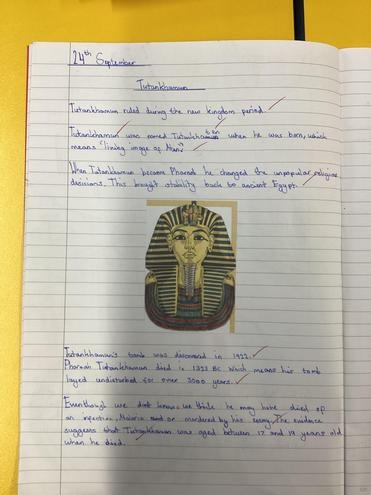 24th September
Tutankhamun
Tutankhamun ruled during the new kingdom period.
Tutankhamun was named when he was born, which
means "living image of Aten".
When Tutankhamun became Pharaoh he changed the unpopular religious
decisions. This brought stability back to ancient Egypt.
Tutankhamun's tomb was discovered in 1922.
Pharaoh Tutankhamun died in 1323 BC which means his tomb
layed undisturbed for over 3000 years.
Eventhough we dont know, we think he may have died of
an infection, Malaria or murdered by his enemy. The evidence
suggests that Tutankhamun was aged between 17 and 19 years old
when he died.